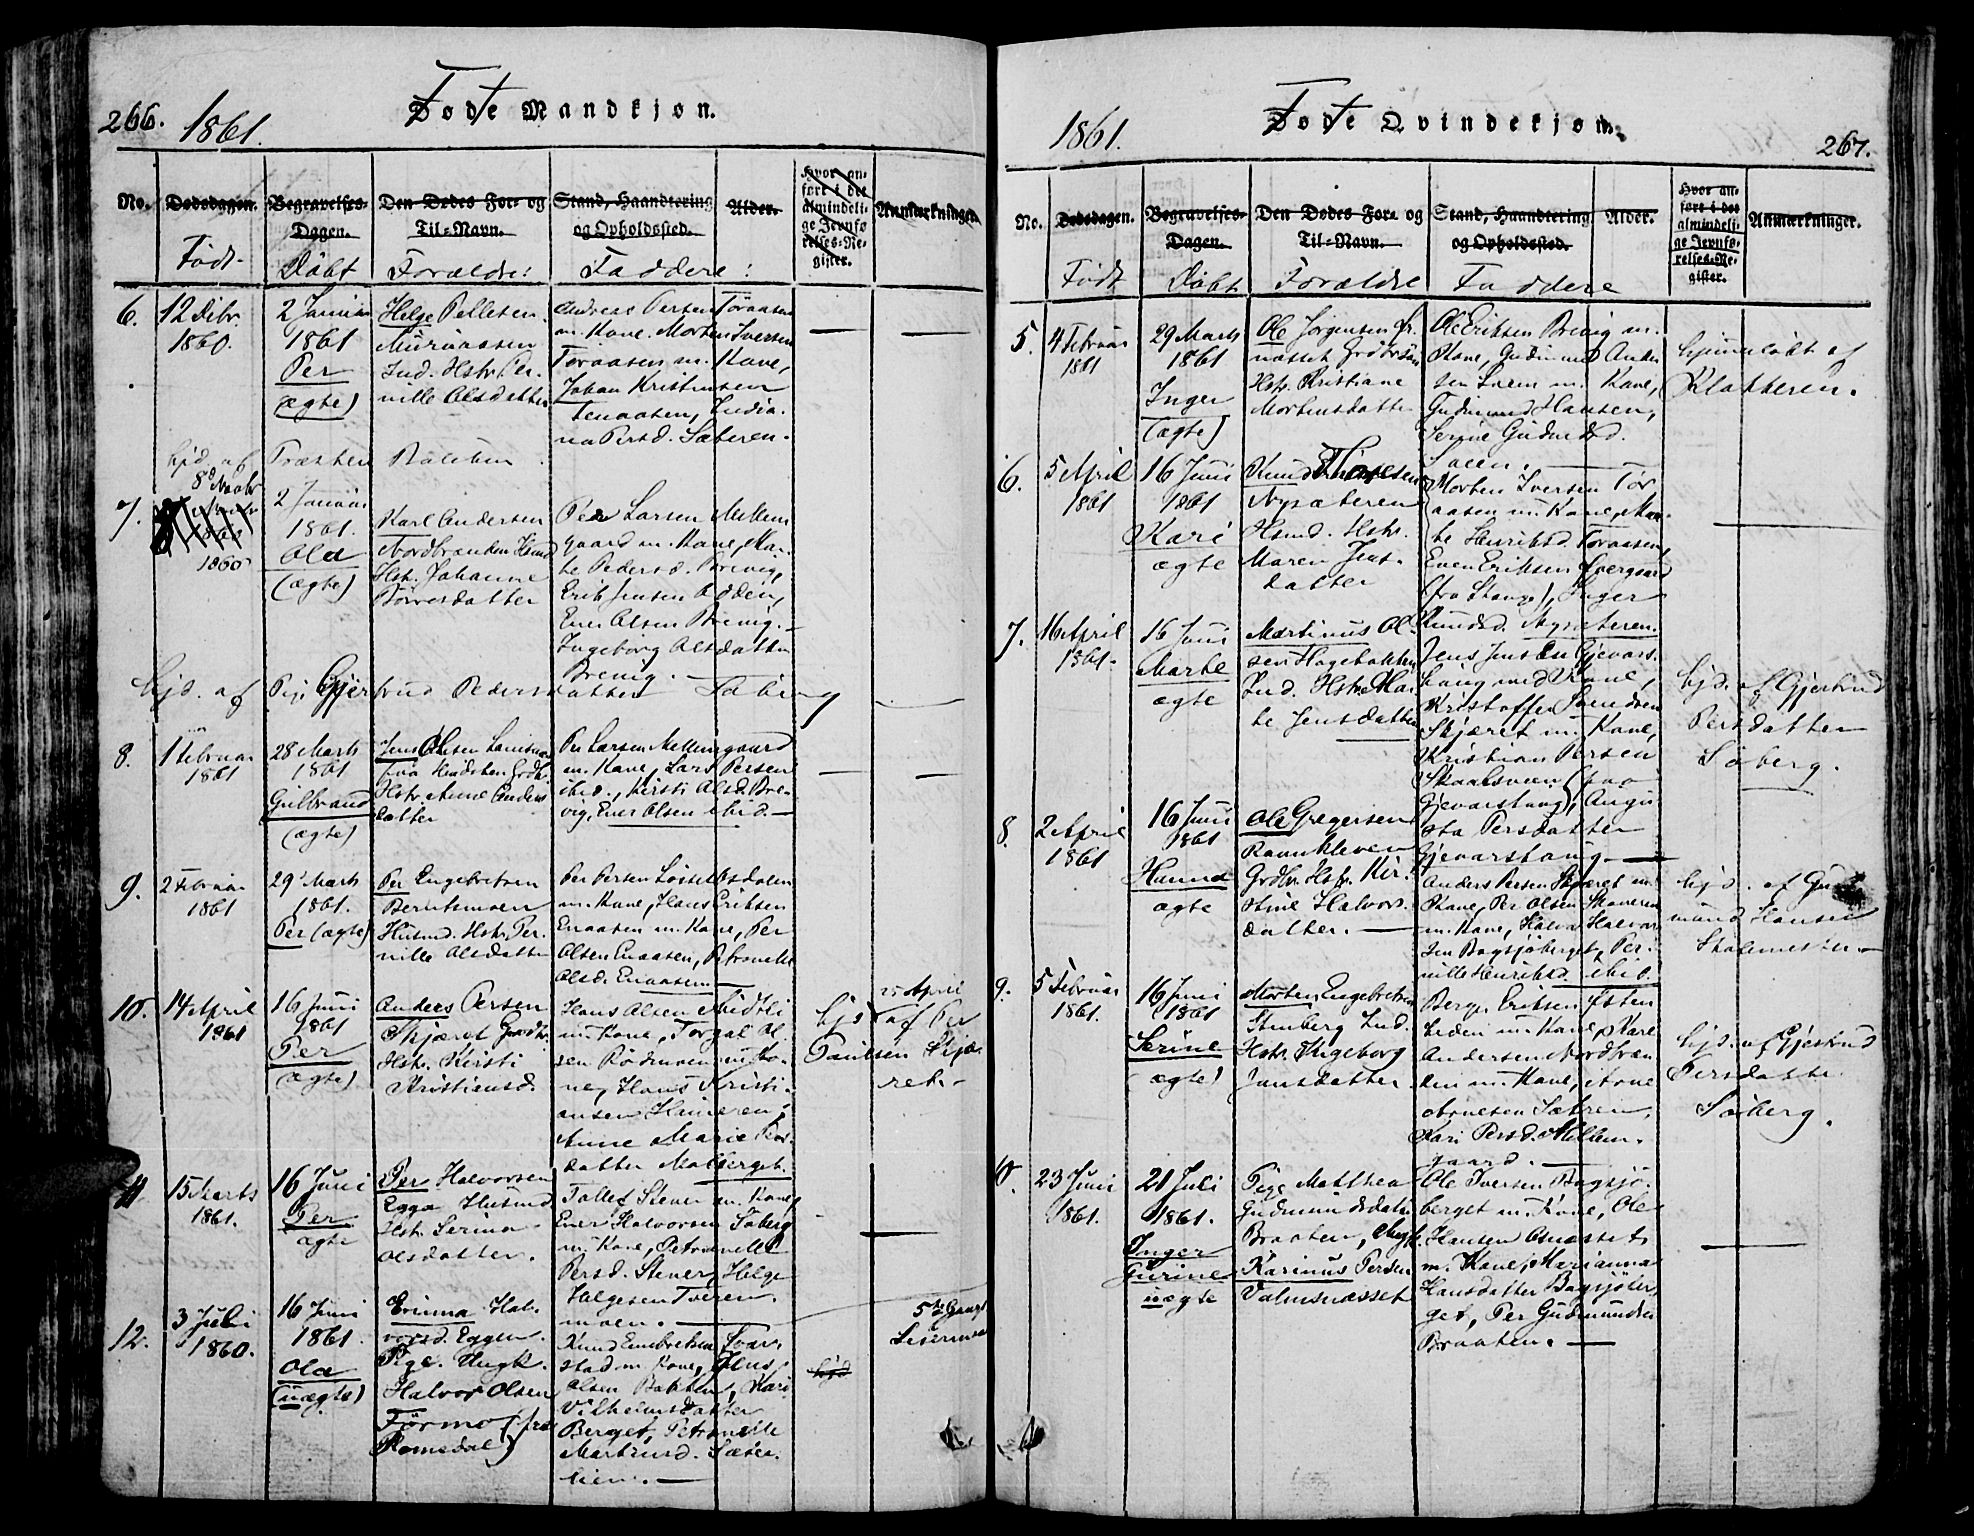 266.
1861.
Fødte Mandkjøn.
No.
Dødsdagen.
Født
Begravelses-
Dagen.
Døbt
Den Dødes For- og
Til-Navn.
Forældre:
Stand, Haandtering
og Opholdssted.
Faddere:
Alder.
Hvor an-
ført i det
almindeli-
ge Jevnfø
relses-Re-
gister.
Anmærkninger.
6.
12 Dcbr.
1860.
2 Januar
1861
Per
(ægte)
Helge Pellesen
Muruaasen
Ind. Hstr. Per-
nille Olsdatter
Andreas Persen Toraasen
m. Kone. Morten Iversen
Toraasen m. Kone,
Johan Kristiansen
Persd. Sæteren.
hjd. af
7.
1860
2 Januar
1861.
Ola
(ægte)
Karl Andersen
Nordbrænden Husmd
Hstr. Johanne
Børresdatter
Peder Larsen Mellem
gaard m. Kone, Mar-
te Pedersd. Brevig,
Erik Jensen Odden,
Ener Olsen Brevig.
Ingeborg Olsdatter
Brevig.
hjd. af Pige Gjertrud Pedersdatter Søberg
8.
1 Februar
1861
28 Marts
1861
Gulbrand
(ægte)
Jens Olsen
Hstr. Anne Anders
datter
Per Larsen Mellemgaard
m. Kone, Lars Persen
ibid., Kirsti Olsd. Bre-
vig, Ener Olsen ibid.
9.
2 Februar
1861
29 Marts
1861.
Per (ægte)
Per Engebretsen
Berntsmoen
Husmd. Hstr. Per-
nille Olsdatter
Per Persen Losselibsdalen
m. Kone, Hans Eriksen
Enaasen m. Kone, Per
Olsen Enaasen, Petronelle
Olsd. Enaasen
10.
14 April
1861
16 Juni
1861
Per
(ægte)
Anders Persen
Skjæret Grdbr.
Hstr. Kirsti
Kristiansd.
Hans Olsen Midtli
m. Kone, Torgal Ol-
sen Rødmoen m. Ko-
ne, Hans Kristi-
ansen Hameren,
Anne Marie Pers-
datter Malberget.
25 April
hjd. af Per
Paulsen Skjæ-
ret.
11
15 Marts
1861.
16 Juni
Per
ægte
Per Halvorsen
Egga Husmd
Hstr. Serine
Olsdatter.
Tollef Stener m. Kone,
Ener Halvorsen Faberg
m. Kone, Petronelle
Persd. Stener, Helge
Helgesen Tveren-
moen.
12.
3 Juli
1860.
16 Juni
1861.
Ola
(uægte)
Erinna Hal-
vorsd. Eggen.
Pige. Ungk.
Halvor Olsen
Formo (fra
Romsdal)
Knud Embretsen Evar-
stad m. Kone, Jens
Olsen Bakken, Kari
Vilhelmsdatter
Berget, Petronelle
Martinsd. Sæter-
lien.
hjd
5te Gangs
Leiermaal
1861.
Fødte Qvindekjøn.
267.
No.
Dødsdagen.
Født
Begravelses-
Dagen.
Døbt
Den Dødes For- og
Til-Navn.
Forældre
Stand, Haandtering
og Opholdssted.
Faddere
Alder.
Hvor an-
ført i det
almindeli-
ge Jevnfø-
relses-Re-
gister.
Anmærkninger.
5.
4 Februar
1861
29 Marts
1861
Inger
(ægte)
Ole Jørgensen
næsset Grdbr.
Hstr. Kristiane
Mortensdatter
Ole Eriksen Brevig m.
Kone, Gudmund Ander
sen Loen m. Kone,
Gudmund Hansen,
Serine Gudmdsd.
Loen.
hjemmedøbt af
Klokkeren.
6.
5 April
1861
16 Juni
1861
Kari
ægte
Knud
Nysæteren
Husmd. Hstr.
Maren Jens-
datter
Morten Iversen Tor
aasen m. Kone, Mar-
te Henriksd. Toraasen,
Even Eriksen Øvergaard
(fra Stange), Inger
Knudsd. Nysæteren.
7.
16 April
1861.
16 Juni
Marte
ægte
Martinus Ol-
sen Hagebakken
Ind. Hstr. Mar-
te Jensdatter
Jens Jensen Gjevars-
haug med Kone,
Kristoffer
Skjæret m. Kone,
Kristian Persen
(paa
Gjevarshaug), Augu
sta Persdatter
Gjevarshaug.
hjd. af Gjertrud
Persdatter
Søberg.
8.
2 April
1861
16 Juni
1861
Hanna
ægte
Ole Gregersen
Ravnkleven
Grdbr. Hstr. Kir-
stine Halvors-
datter.
Anders Persen Skjæret m.
Kone, Per Olsen
m. Kone, Halvor Halvor
sen Bagsjøberget, Per-
nille Henriksd. ibid.
hjd. af Gud-
mund Hansen
Skolemester.
9.
5 Februar
1861.
16 Juni
1861
Serine
(ægte)
Morten Engebretsen
Stenberg Ind.
Hstr. Ingeborg
Jensdatter
Berger Eriksen Østen
heden m. Kone, Karl
Andersen Nordbræn
den m. Kone, Arne
Arnesen Sætren,
Kari Persd. Mellem-
gaard.
hjd. af Gjertrud
Persdatter
Søberg.
10.
23 Juni
1861.
21 Juli
1861.
Inger
Gurine
uægte
Pige Mathea
Gudmundsdatter
Braaten, Ungk.
Karinus Persen
Valmsnæsset
Ole Iversen Bagsjø-
berget m. Kone, Ole
Hansen Osnæsset
m. Kone, Marianna
Hansdatter Bagsjøber
get, Per Gudmundsen
Braaten.